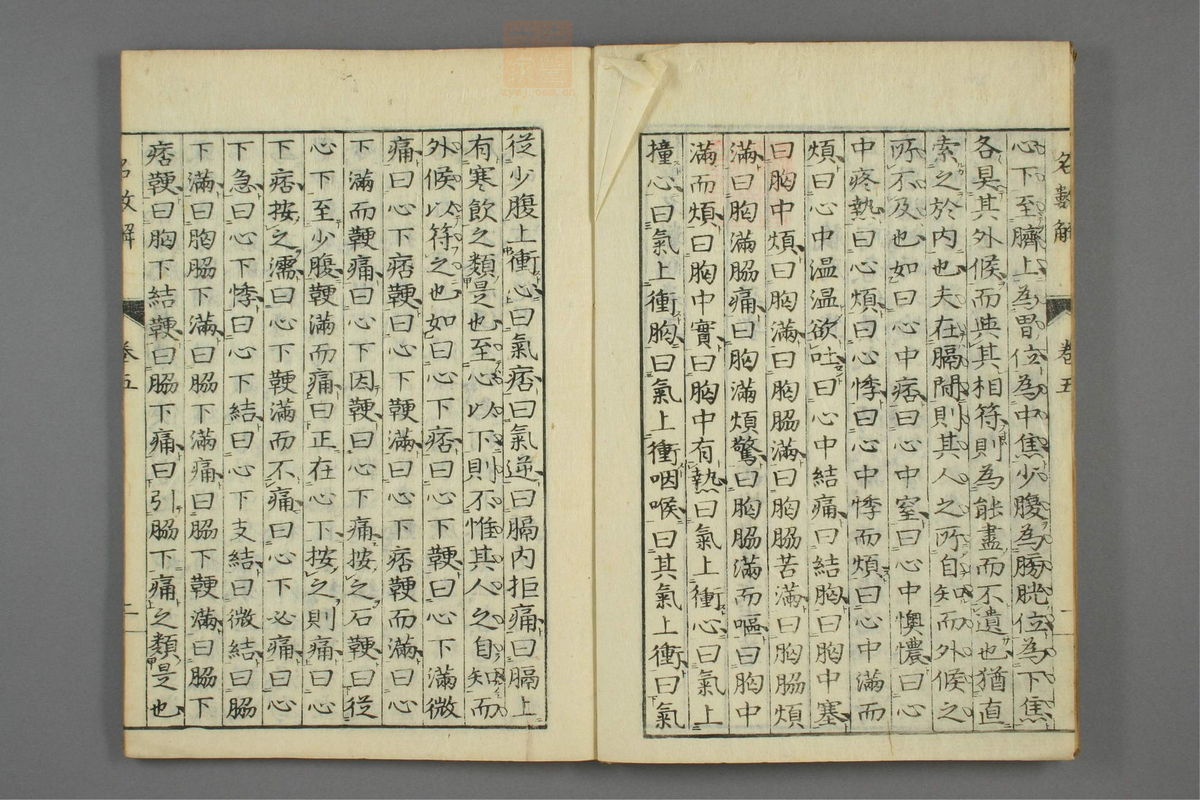 心下至臍上為胃位為中焦少腹為膀胱位為下焦
各具其外候而與其相符則為能盡而不遺也猶直
索之於内也夫在膈間則其人之所自知而外候之
所不及也如曰心中痞曰心中窒曰心中懊憹曰心
中疼熱曰心煩曰心悸曰心中悸而煩曰心中滿而
煩曰心中温温欲吐曰心中結痛曰結胸曰胸中塞
曰胸中煩曰胸滿曰胸脇滿曰胸脇苦滿曰胸脇煩
滿曰胸滿脇痛曰胸滿煩驚曰胸脇滿而嘔曰胸中
滿而煩曰胸中實曰胸中有熱曰氣上衝心曰氣上
撞心曰氣上衝胸曰氣上衝咽喉曰其氣上衝曰氣
名數解
卷五
從少腹上衝心曰氣痞曰氣逆曰膈内拒痛曰膈上
有寒飲之類是也至心以下則不惟其人之自知而
外候以符之也如曰心下痞曰心下鞕曰心下滿微
痛曰心下痞鞕曰心下鞕滿曰心下痞鞕而滿曰心
下滿而鞕痛曰心下因鞕曰心下痛按之石鞕曰從
心下至少腹鞕滿而痛曰正在心下按之則痛曰心
下痞按之濡曰心下鞕滿而不痛曰心下必痛曰心
下急曰心下悸曰心下結曰心下支結曰微結曰脇
下滿曰胸脇下滿曰脇下滿痛曰脇下鞕滿曰脇下
痞鞕曰胸下結鞕曰脇下痛曰引脇下痛之類是也
名數解
卷五